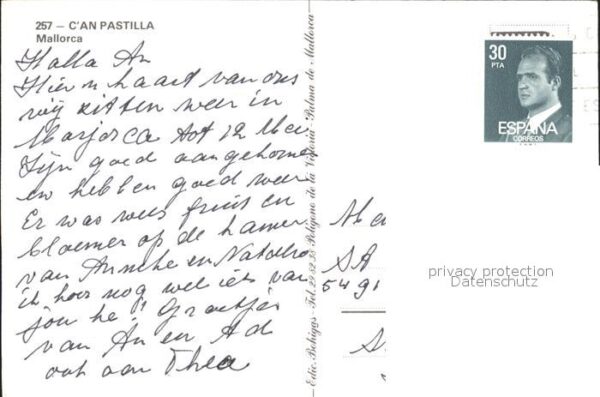 257 – C'AN PASTILLA
Mallorca
Halla An
Hier n kaart van ons
wij zitten weer in
Marjorca tot 12 Mei
Zijn goed aangekomen
en hebben goed weer
Er was weer fruit en
bloemen op de kamer
van Anneke en
ik hoor nog wel iets van
jou he! Groetjes
van An en Ad
ook aan Thea
Edic. Bohigas - Tel.
Palma de Mallorca
30
PTA
ESPAÑA
CORREOS
SA
5491
privacy protection
Datenschutz